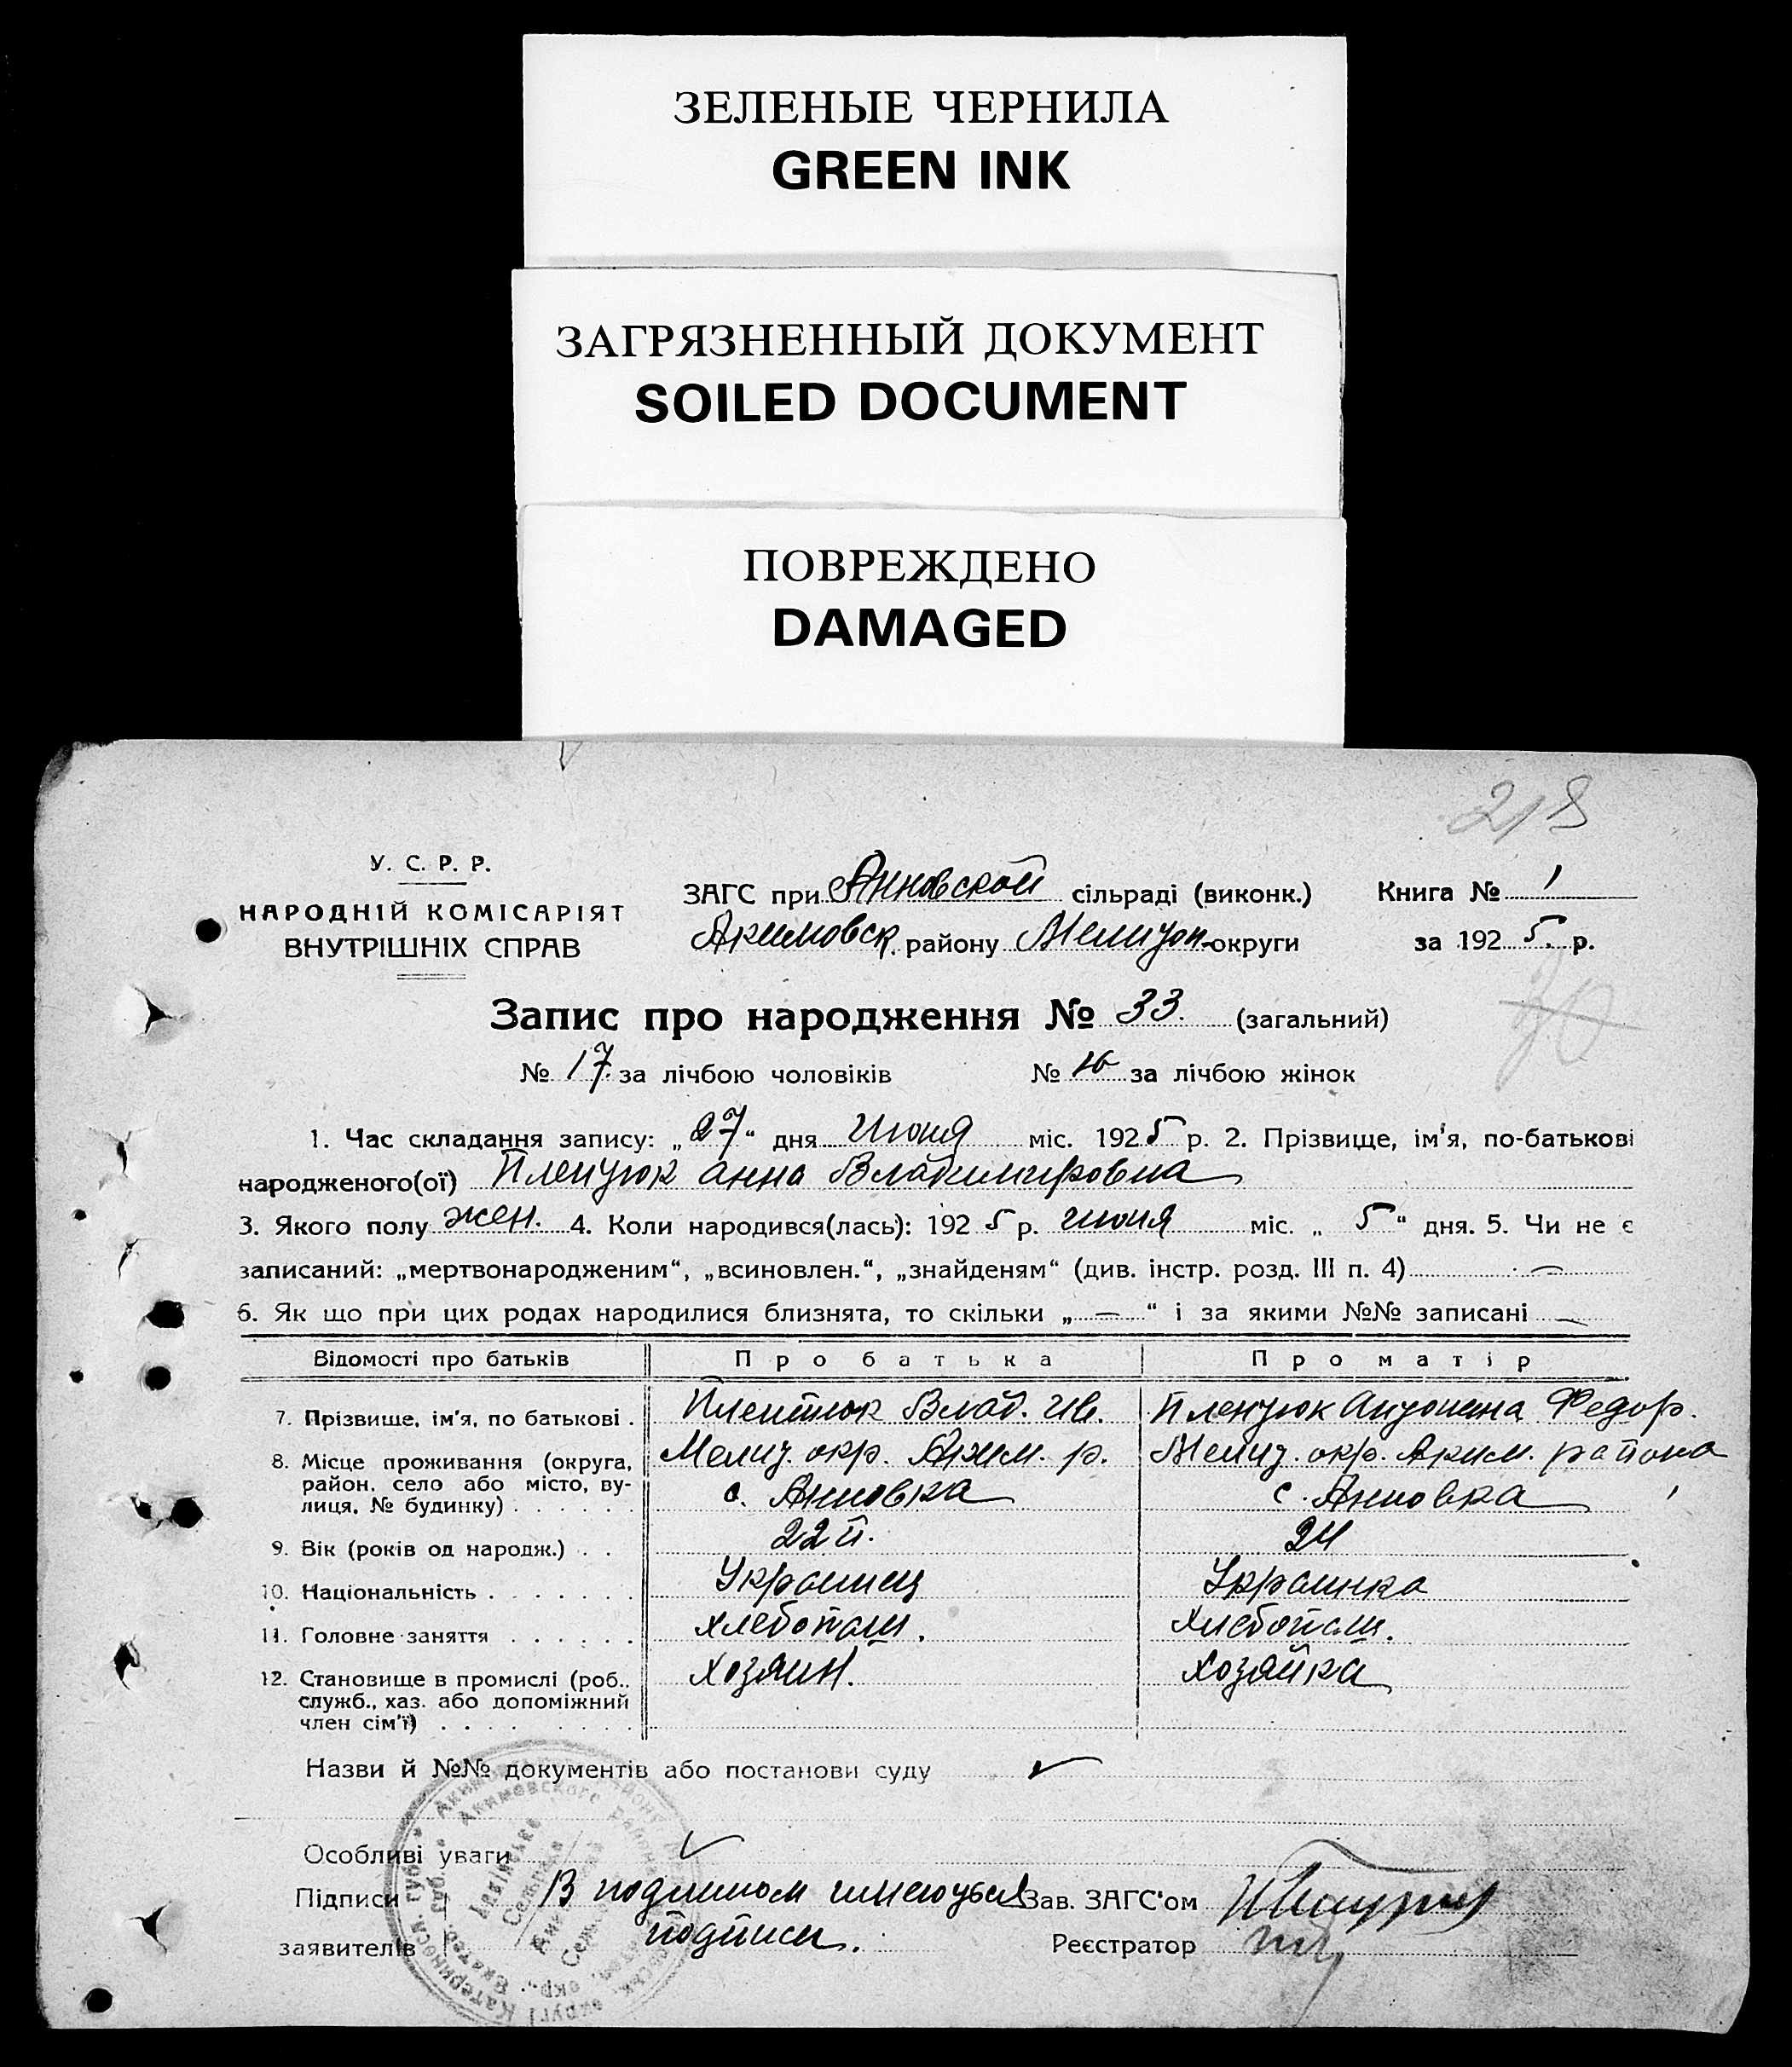 ЗЕЛЕНЫЕ ЧЕРНИЛА
GREEN INK
ЗАГРЯЗНЕННЫЙ ДОКУМЕНТ
SOILED DOCUMENT
ПОВРЕЖДЕНО
DAMAGED
218
У. С. Р. Р.
НАРОДНІЙ КОМІСАРІЯТ
ВНУТРІШНІХ СПРАВ
ЗАГС при Анновской сільраді (виконк.) Книга № 1
Акимовск. району Мелитоп. округи за 1925 р.
Запис про народження № 33. (загальний)
№ 17. за лічбою чоловіків № 16 за лічбою жінок
1. Час складання запису: „27“ дня Июня міс. 1925 р. 2. Прізвище, ім'я, по-батькові
народженого(ої) Плентюк Анна Владимировна
3. Якого полу жен. 4. Коли народився(лась): 1925 р. июня міс. „5“ дня. 5. Чи не є
записаний: „мертвонародженим“, „всиновлен.“, „знайденям“ (див. інстр. розд. III п. 4) —
6. Як що при цих родах народилися близнята, то скільки „—“ і за якими №№ записані —
Відомості про батьків Про батька Про матір
7. Прізвище, ім'я, по батькові . Плентюк Влад. Ив. Плентюк Антонина Федор.
8. Місце проживання (округа, район, село або місто, вулиця, № будинку) . . . . . .
Мелит. окр. Аким. р. Мелит. окр. Аким. района
с. Анновка с. Анновка
9. Вік (років од народж.) . . 22 л. 24
10. Національність . . . . . . . Украинец Украинка
11. Головне заняття . . . . . . хлебопаш. хлебопаш.
12. Становище в промислі (роб., хозяин. хозяйка
служб., хаз. або допоміжний
член сім'ї) . . . . . . . . .
Назви й №№ документів або постанови суду
Особливі уваги
Підписи В подлинном имеються Зав. ЗАГС'ом
заявителів подписи. Реєстратор